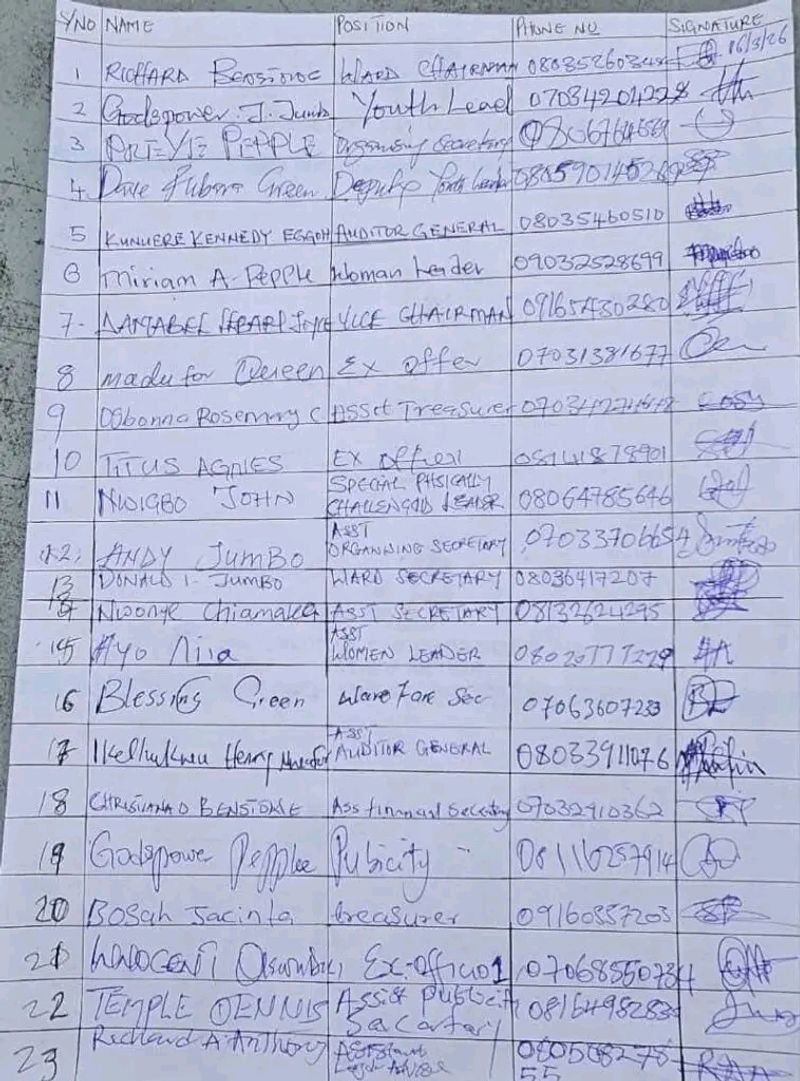 S/NO NAME POSITION PHONE NO SIGNATURE
16/3/26
1 RICHARD BENSTOWE WARD CHAIRMAN
2 Godspower. J. Jumbo Youth Lead 07034204228
3 PEPPLE Organising Secretary
4. Dave Fubara Green Deputy Youth Leader
5 KUNUERE KENNEDY EGGOH AUDITOR GENERAL 08035460510
6 Miriam A. Pepple Woman Leader 09032528699
7. VICE CHAIRMAN 09165430280
8 made for Queen Ex offer 07031381677
9 Ogbonna Rosemary C Asset Treasurer
10 TITUS AGNES EX officer 08141878901
11 NWIGBO JOHN SPECIAL PHYSICALLY
CHALLENGED LEADER 08064785646
12. ANDY JUMBO ASST
ORGANNING SECRETARY 07033706654
13 DONALD I. JUMBO WARD SECRETARY 08036417207
14 Nwonye Chiamaka ASST SECRETARY 08132624295
15 Ayo Nira ASST
WOMEN LEADER 08020777229
16 Blessing Green Ware Fare Sec 07063607233
17 Ikechukwu Henry ASST
AUDITOR GENERAL 08033911076
18 CHRISTIANA D BENSTOWE Ass financial Secretary 07032910362
19 Godspower Pepple Pubicity 08116257914
20 Bosah Jacinta treasurer 09160357203
21 INNOCENT Ex-officio1 07068550734
22 TEMPLE DENNIS Assist publicity
Sacartary 0816498283
23 Richard A Anthony Assistant
Legal Adviser 080508275
55